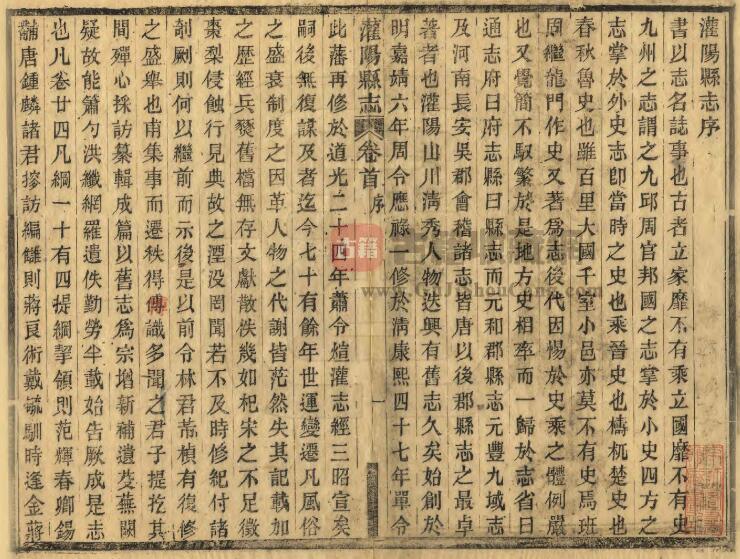 灌陽縣志序
書以志名誌事也古者立家靡不有乘立國靡不有史
九州之志謂之九邱周官邦國之志掌於小史四方之
志掌於外史志卽當時之史也乘晉史也檮杌楚史也
春秋魯史也雖百里大國千室小邑亦莫不有史焉班
固繼龍門作史又著為志後代因惕於史乘之體例嚴
也又覺簡不馭繁於是地方史相率而一歸於志省曰
通志府曰府志縣曰縣志而元和郡縣志元豐九域志
及河南長安吳郡會稽諸志皆唐以後郡縣志之最卓
著者也灌陽山川淸秀人物迭興有舊志久矣始創於
明嘉靖六年周令應祿一修於淸康熙四十七年單令
灌陽縣志 卷首 序 一
此藩再修於道光二十四年蕭令煊灌志經三昭宣矣
嗣後無復謀及者迄今七十有餘年世運變遷凡風俗
之盛衰制度之因革人物之代謝皆茫然失其記載加
之歷經兵燹舊檔無存文獻散佚幾如杞宋之不足徵
棗梨侵蝕行見典故之湮没罔聞若不及時修紀付諸
剞劂則何以繼前而示後是以前令林君芾楨有復修
之盛舉也甫集事而遷秩得傳識多聞之君子提挖其
間殫心採訪纂輯成篇以舊志為宗增新補遺芟蕪闕
疑故能籥勺洪纖網羅遺佚勤勞半載始告厥成是志
也凡卷廿四凡綱一十有四提綱挈領則范輝春卿錫
黼唐鍾麟諸君摉訪編讎則蔣艮術戴毓馴時逢金蔣
古籍
www.GuJiShouCang.com